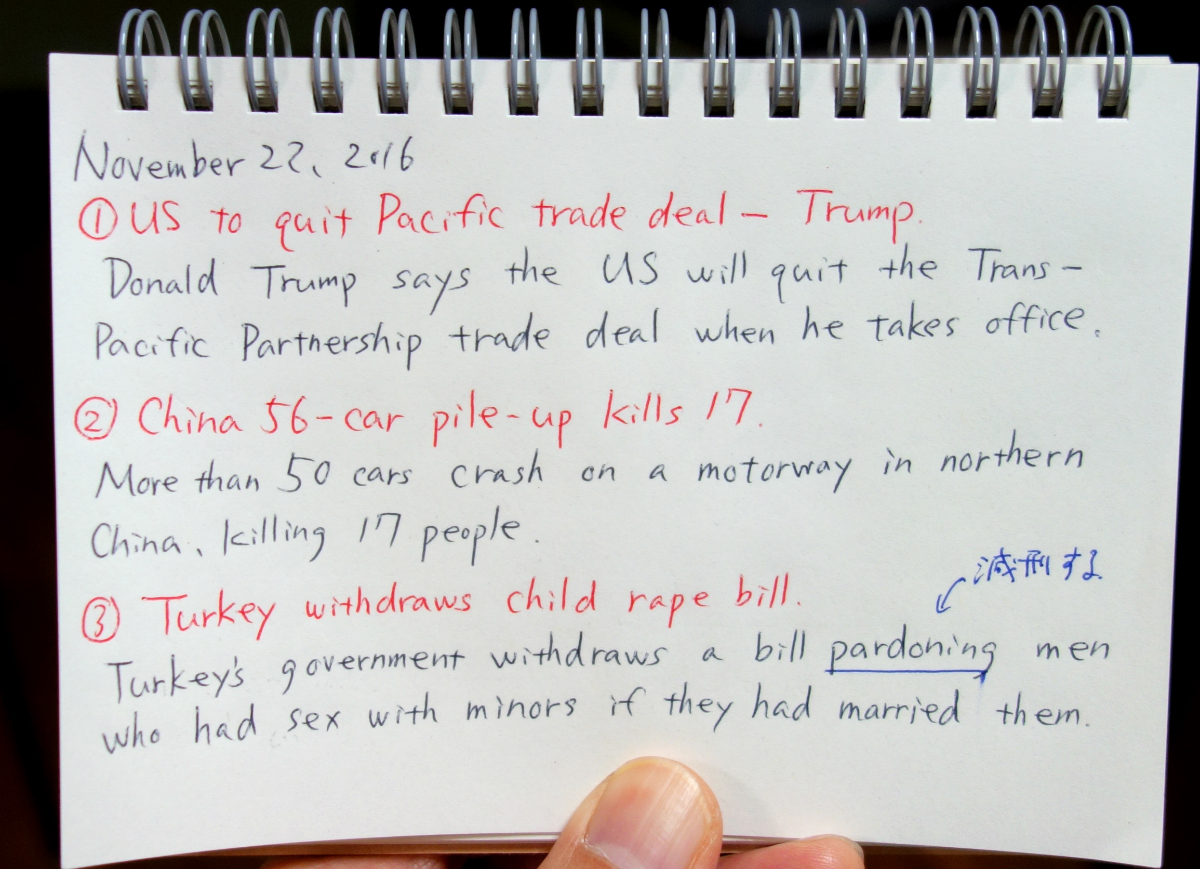 November 22、2016
① US to quit Pacific trade deal – Trump.
Donald Trump says the US will quit the Trans-
Pacific Partnership trade deal when he takes office.
② China 56-car pile-up kills 17.
More than 50 cars crash on a motorway in northern
China、killing 17 people.
減刑する
③ Turkey withdraws child rape bill.
Turkey's government withdraws a bill pardoning men
who had sex with minors if they had married them.